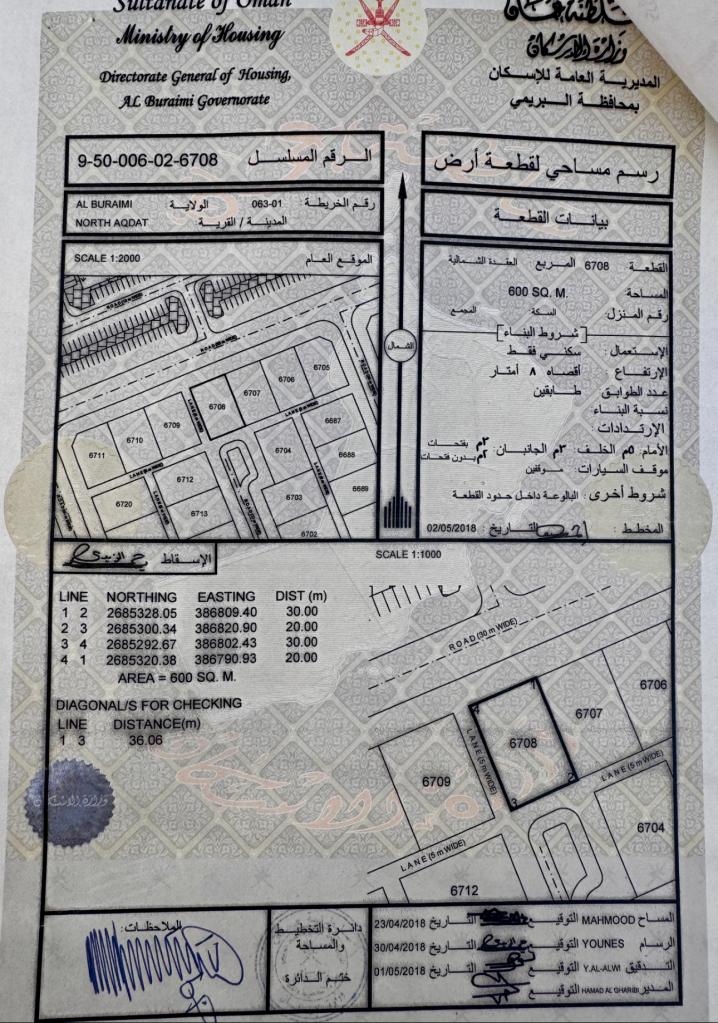 Sultanate of Oman
سلطنة عمان
Ministry of Housing
وزارة الإسكان
Directorate General of Housing,
المديرية العامة للإسكان
AL Buraimi Governorate
بمحافظة البريمي
رسم مساحي لقطعة أرض
الرقم المسلسل 9-50-006-02-6708
بيانات القطعة
رقم الخريطة 063-01 الولاية AL BURAIMI
المدينة / القرية NORTH AQDAT
القطعة 6708 المربع العقدة الشمالية
المساحة 600 SQ. M.
رقم المنزل السكة المجمع
شروط البناء
الإستعمال: سكني فقط
الإرتفاع: أقصاه ٨ أمتار
عدد الطوابق طابقين
نسبة البناء:
الإرتدادات:
الأمام: ٥م الخلف: ٣م الجانبان: ٣م بفتحات
٢م بدون فتحات
موقف السيارات: موقفين
شروط أخرى: البالوعة داخل حدود القطعة
المخطط: التاريخ: 02/05/2018
الشمال
الموقع العام SCALE 1:2000
ROAD (30 m WIDE)
6705
6706
6707
6708
6709
6710
6711
LANE (5 m WIDE)
6687
6688
6689
6704
6703
6702
6712
6713
6720
الإسقاط
SCALE 1:1000
LINE NORTHING EASTING DIST (m)
1 2 2685328.05 386809.40 30.00
2 3 2685300.34 386820.90 20.00
3 4 2685292.67 386802.43 30.00
4 1 2685320.38 386790.93 20.00
AREA = 600 SQ. M.
DIAGONAL/S FOR CHECKING
LINE DISTANCE(m)
1 3 36.06
ROAD (30 m WIDE)
6706
6707
6708
6709
1
2
3
4
LANE (5 m WIDE)
LANE (5 m WIDE)
LANE (5 m WIDE)
6704
6712
وزارة الإسكان
المساح MAHMOOD التوقيع التاريخ 23/04/2018
الرسام YOUNES التوقيع التاريخ 30/04/2018
التدقيق Y.AL-ALWI التوقيع التاريخ 01/05/2018
المدير HAMAD AL GHARIBI التوقيع
دائرة التخطيط
والمساحة
ختم الدائرة
الملاحظات: